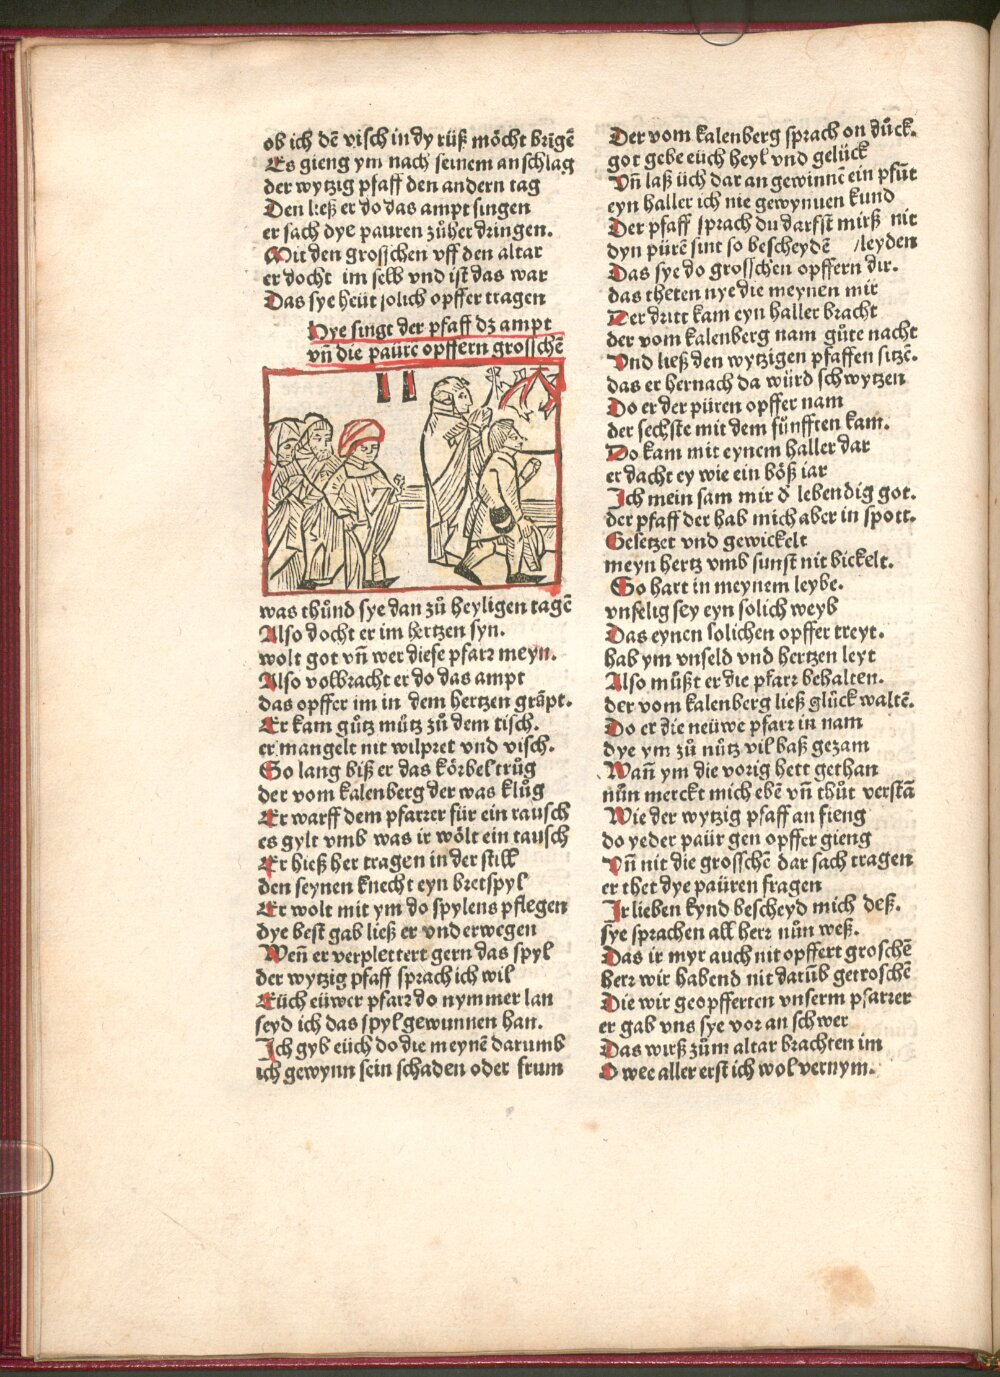 ob ich dē visch in dy rüß möcht brīgē
Es gieng ym nach seinem anschlag
der wytzig pfaff den andern tag
Den ließ er do das ampt singen
er sach dye pauren zůher dringen.
Mit den grosschen vff den altar
er docht im selb vnd ist das war
Das sye heüt solich opffer tragen
Hye singt der pfaff dz ampt
vn̄ die paürē opffern grosschē
was thůnd sye dan zů heyligen tagē
Also docht er im hertzen syn.
wolt got vn̄ wer diese pfarr meyn.
Also volbracht er do das ampt
das opffer im in dem hertzen grāpt.
Er kam gůtz můtz zů dem tisch.
er mangelt nit wilpret vnd visch.
So lang biß er das körbel trůg
der vom kalenberg der was klůg
Er warff dem pfarrer für ein rausch
es gylt vmb was ir wölt ein tausch
Er hieß her tragen in der still
den seynen knecht eyn bretspyl
Er wolt mit ym do spylens pflegen
dye best gab ließ er vnderwegen
Wen̄ er verplettert gern das spyl
der wytzig pfaff sprach ich wil
Eüch eüwer pfarr do nymmer lan
seyd ich das spyl gewunnen han.
Ich gyb eüch do die meynē darumb
ich gewynn sein schaden oder frum
Der vom kalenberg sprach on dück.
got gebe eüch heyl vnd gelück
Vn̄ laß üch dar an gewinnē ein pfūt
eyn haller ich nie gewynuen kund
Der pfaff sprach du darfst mirß nit
dyn pürē sint so bescheydē /leyden
Das sye do grosschen opffern dir.
das theten nye die meynen mir
Der dritt kam eyn haller bracht
der vom kalenberg nam gůte nacht
Vnd ließ den wytzigen pfaffen sitzē.
das er hernach da würd schwytzen
Do er der püren opffer nam
der sechste mit dem fünfften kam.
Do kam mit eynem haller dar
er dacht ey wie ein böß iar
Ich mein sam mir d̄ lebendig got.
der pfaff der hab mich aber in spott.
Gesetzet vnd gewickelt
meyn hertz vmb sunst nit bickelt.
So hart in meynem leybe.
vnselig sey eyn solich weyb
Das eynen solichen opffer treyt.
hab ym vnseld vnd hertzen leyt
Also müßt er die pfarr behalten.
der vom kalenberg ließ glück waltē.
Do er die neüwe pfarr in nam
dye ym zů nůtz vil baß gezam
Wan̄ ym die vorig hett gethan
nůn merckt mich ebē vn̄ thůt verstā
Wie der wytzig pfaff an fieng
do yeder paür gen opffer gieng
Vn̄ nit die grosschē dar sach tragen
er thet dye paüren fragen
Ir lieben kynd bescheyd mich deß.
sye sprachen all herr nůn weß.
Das ir myr auch nit opffert groschē
herr wir habend nit darůb getroschē
Die wir geopfferten vnserm pfarrer
er gab vns sye vor an schwer
Das wirß zům altar brachten im
O wee aller erst ich wol vernym.